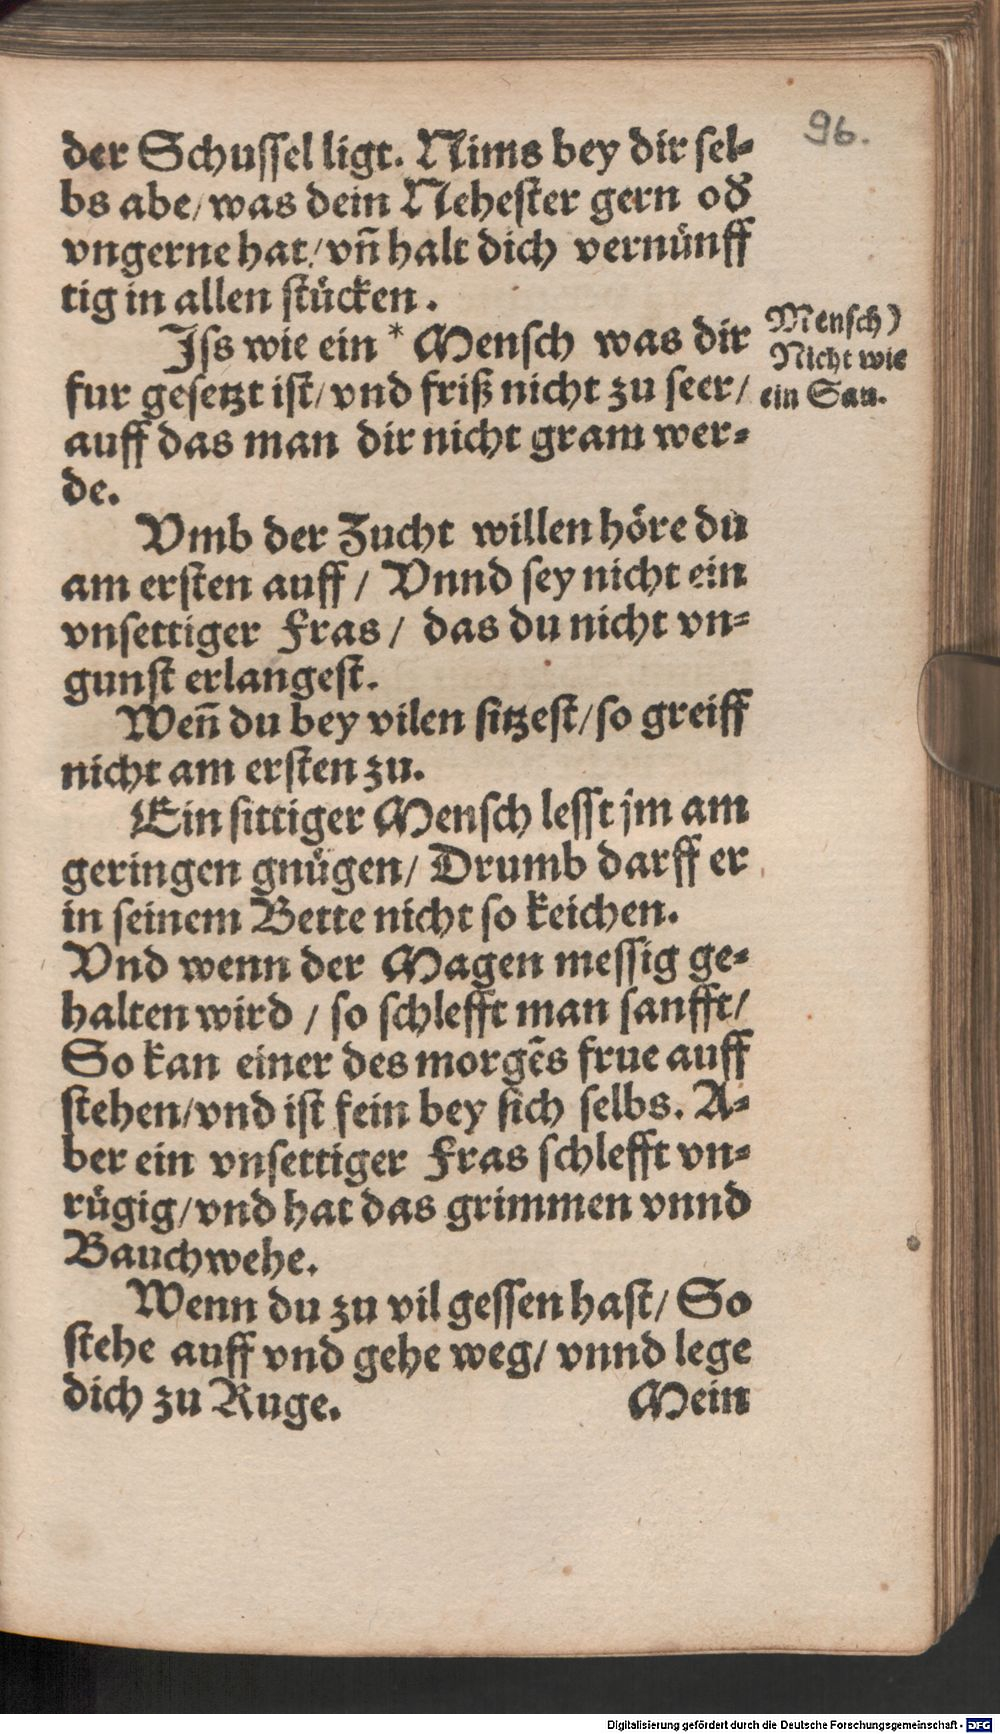 96.
der Schussel ligt. Nims bey dir sel⸗
bs abe/ was dein Nehester gern od̕
vngerne hat/ vn̄ halt dich vernuͤnff
tig in allen stuͤcken.
Iss wie ein * Mensch was dir
fur gesetzt ist/ vnd friß nicht zu seer/
auff das man dir nicht gram wer⸗
de.
Mensch)
Nicht wie
ein Sau.
Vmb der Zucht willen hoͤre du
am ersten auff / Vnnd sey nicht ein
vnsettiger Fras / das du nicht vn⸗
gunst erlangest.
Wen̄ du bey vilen sitzest/ so greiff
nicht am ersten zu.
Ein sittiger Mensch lesst jm am
geringen gnuͤgen/ Drumb darff er
in seinem Bette nicht so keichen.
Vnd wenn der Magen messig ge⸗
halten wird / so schlefft man sanfft/
So kan einer des morgēs frue auff
stehen/ vnd ist fein bey sich selbs. A⸗
ber ein vnsettiger Fras schlefft vn⸗
ruͤgig/ vnd hat das grimmen vnnd
Bauchwehe.
Wenn du zu vil gessen hast/ So
stehe auff vnd gehe weg/ vnnd lege
dich zu Ruge.
Mein
Digitalisierung gefördert durch die Deutsche Forschungsgemeinschaft - DFG